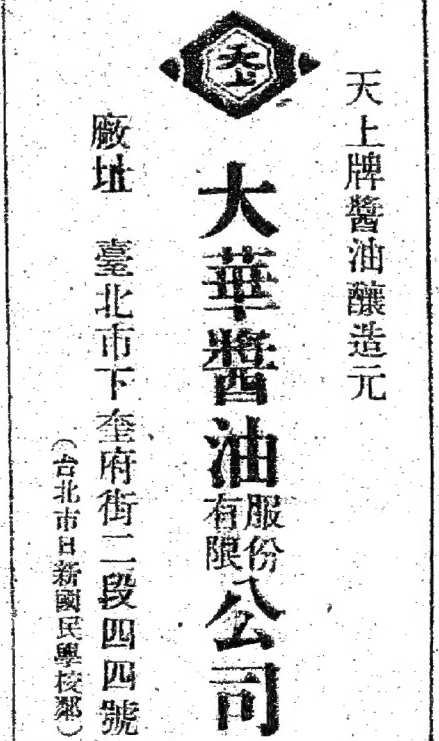 天上牌醬油釀造元
天上
大華醬油股份有限公司
廠址 臺北市下奎府街二段四四號
（台北市日新國民學校鄰）